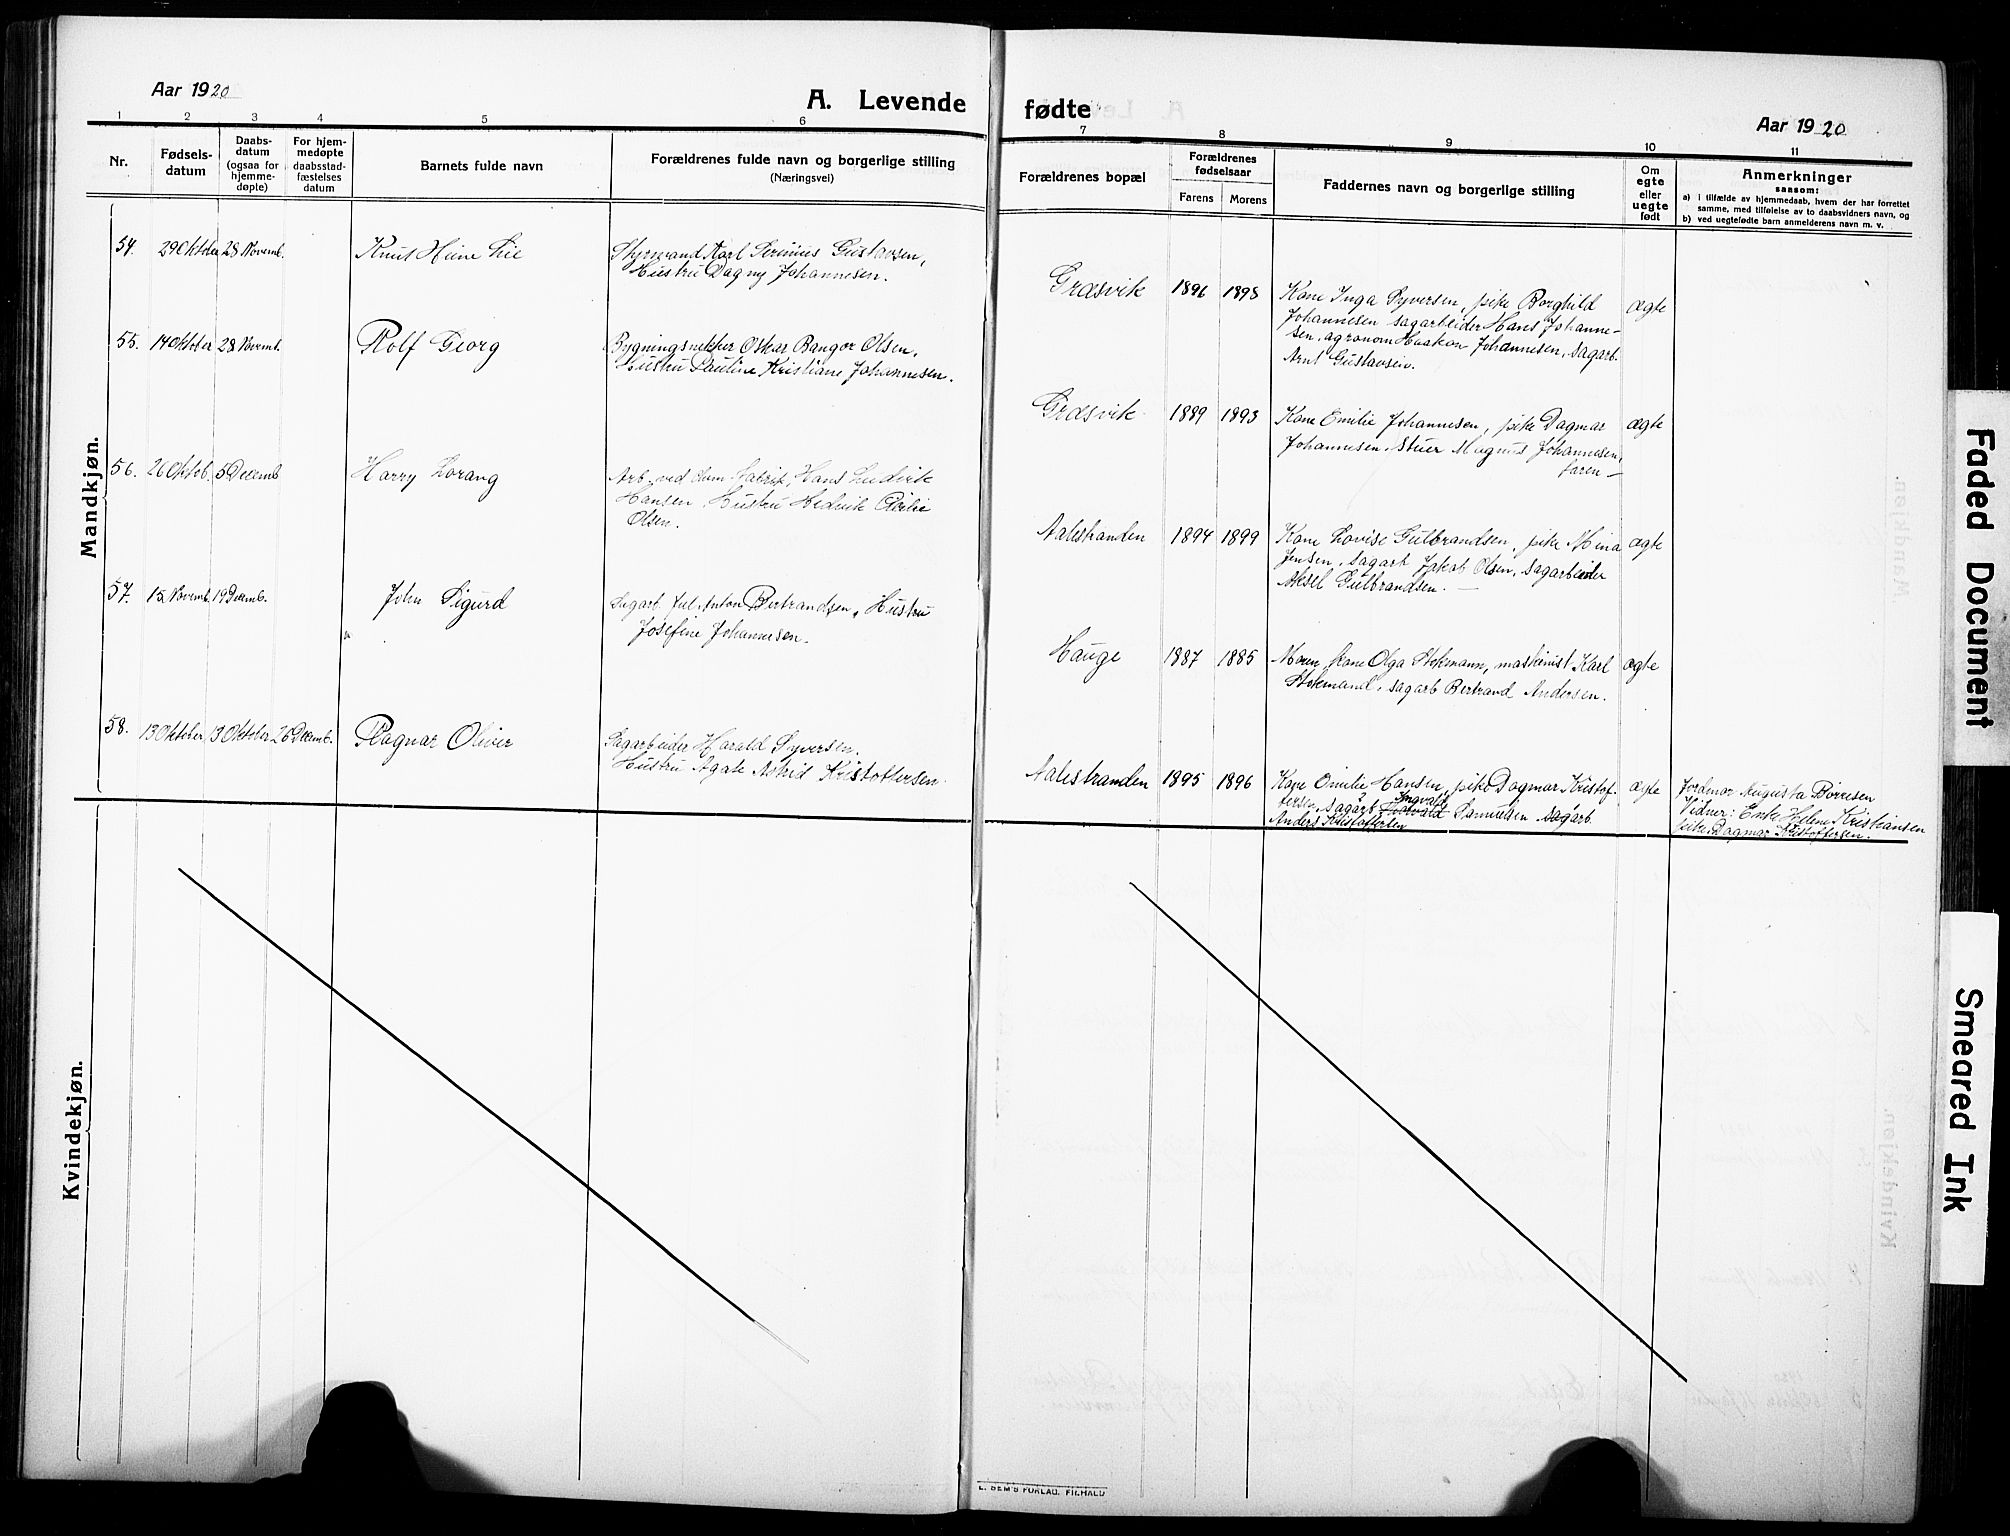 Aar 1920
A. Levende
1 2 3 4 5 6
Nr.
Fødsels-
datum
Daabs-
datum
(ogsaa for
hjemme-
døpte)
For hjem-
medøpte
daabsstad-
fæstelses
datum
Barnets fulde navn
Forældrenes fulde navn og borgerlige stilling
(Næringsvei)
Mandkjøn.
54. 29 Oktober 28 Novemb. Knut
Styrmand Karl Serinius Gustavsen,
Hustru Dagny Johannesen.
55. 14 Oktober 28 Novemb. Rolf Georg
Oskar Bangor Olsen,
Hustru Pauline Kristiane Johannesen.
56. 26 Oktob. 5 Decemb Harry Lorang
Arb. ved Hans Ludvik
Hansen, Hustru Hedvik
Olsen.
57. 15 Novemb. 19 Decemb. John Sigurd
Sagarb. Jul. Anton Bertrandsen, Hustru
Josefine Johannesen.
58. 13 Oktober 13 Oktober 26 Decemb. Ragnar Oliver
Sagarbeider Harald Syversen.
Hustru Agate Astrid Kristoffersen.
Kvindekjøn.
fødte
Aar 1920
7 8 9 10 11
Forældrenes bopæl
Forældrenes
fødselsaar
Farens Morens
Faddernes navn og borgerlige stilling
Om
egte
eller
uegte
født
Anmerkninger
saasom:
a) i tilfælde av hjemmedaab, hvem der har forrettet
samme, med tilføielse av to daabsvidners navn, og
b) ved uegtefødte barn anmelderens navn m. v.
Græsvik 1896 1898 Kone Inga Syversen, pike Borghild ægte
Johannesen sagarbeider Hans Johanne-
sen, agronom Haakon Johannesen, sagarb.
Arnt Gustavsen.
Græsvik 1889 1893 Kone Emilie Johannesen, pike Dagmar ægte
Johannesen, Stuer Magnus Johannesen,
faren —
Aalestranden 1894 1899 Kone Lovise Gulbrandsen, pike Mina ægte
Jensen, sagarb Jakob Olsen, sagarbeider
Aksel Gulbrandsen. —
Hauge 1887 1885 Moren, kone Olga Stokmann, maskinist Karl ægte
Stokmand, sagarb Bertrand Andersen.
Aalestranden 1895 1896 Kone Emilie Hansen, pike Dagmar Kristof- ægte
fersen, sagarb Ingvald Samuelsen sagarb.
Anders Kristoffersen
Jordmor Augusta Børresen
Vidner: Enke Helene Kristiansen
pike Dagmar Kristoffersen.
E. SEM'S FORLAG. FR.HALD
Faded Document
Smeared Ink